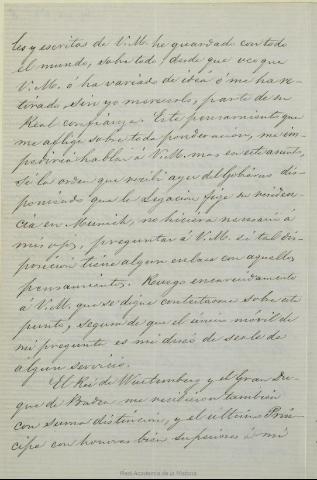 les y escritas de V.M. he guardado con todo
el mundo, sobre todo desde que veo que
V.M. ó ha variado de idea ó me ha re-
tirado, sin yo merecerlo, parte de su
Real confianza. Este pensamiento que
me aflige sobre toda ponderacion, me im-
pediría hablar á V.M. mas en este asunto,
si la orden que recibí ayer del Gobierno dis-
poniendo que la Legacion fije su residen-
cia en Munich, no hiciera necesario a
mis ojos, preguntar á V.M. si tal dis-
posicion tiene algun enlace con aquellos
pensamientos. Ruego encarecidamente
á V.M. que se digne contestarme sobre este
punto, seguro de que el único móvil de
mi pregunta es mi deseo de serle de
algun servicio.
El Rei de Wurtemberg y el Gran Du-
que de Baden me recibieron tambien
con suma distincion, y el ultimo Prín-
cipe con honores bien superiores á mi
Real Academia de la Historia